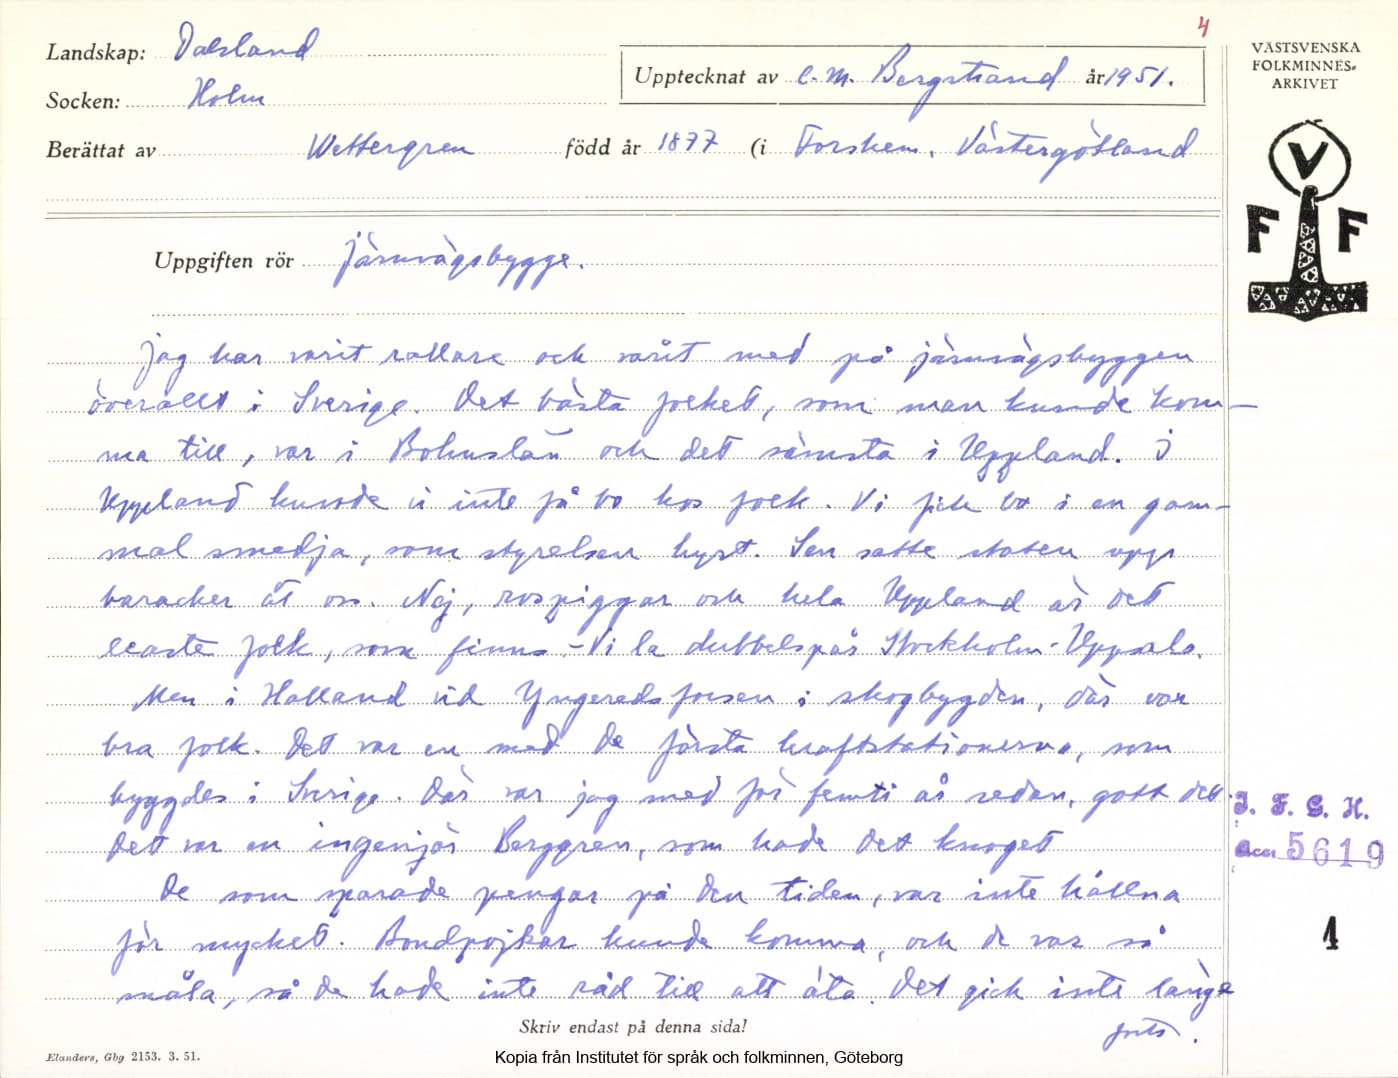 4
Landskap: Dalsland
Socken: Holm
Upptecknat av C. M. Bergstrand år 1951.
Berättat av Wettergren född år 1877 (i Forshem. Västergötland
VÄSTSVENSKA
FOLKMINNES-
ARKIVET
V
F F
Uppgiften rör järnvägsbygge.
Jag har varit rallare och varit med på järnvägsbyggen
överallt i Sverige. Det bästa folket, som man kunde kom-
ma till, var i Bohuslän och det sämsta i Uppland. I
Uppland kunde vi inte få bo hos folk. Vi fick bo i en gam-
mal smedja, som styrelsen hyrt. Sen satte staten upp
baracker åt oss. Nej, rospiggar och hela Uppland är det
leaste folk, som finns. - Vi la dubbelspår Stockholm-Uppsala.
Men i Halland vid Yngeredsforsen i skogbygden, där var
bra folk. Det var en med de första kraftstationerna, som
byggdes i Sverige. Där var jag med för femti år sedan, gott det.
Det var en ingenjör Berggren, som hade det knoget
De som sparade pengar på den tiden, var inte hållna
för mycket. Bondpojkar kunde komma, och de var så
snåla, så de hade inte råd till att äta. Det gick inte länge
förrs.
I. F. G. H.
Acc 5619
1
Skriv endast på denna sida!
Elanders, Gbg 2153. 3. 51.
Kopia från Institutet för språk och folkminnen, Göteborg